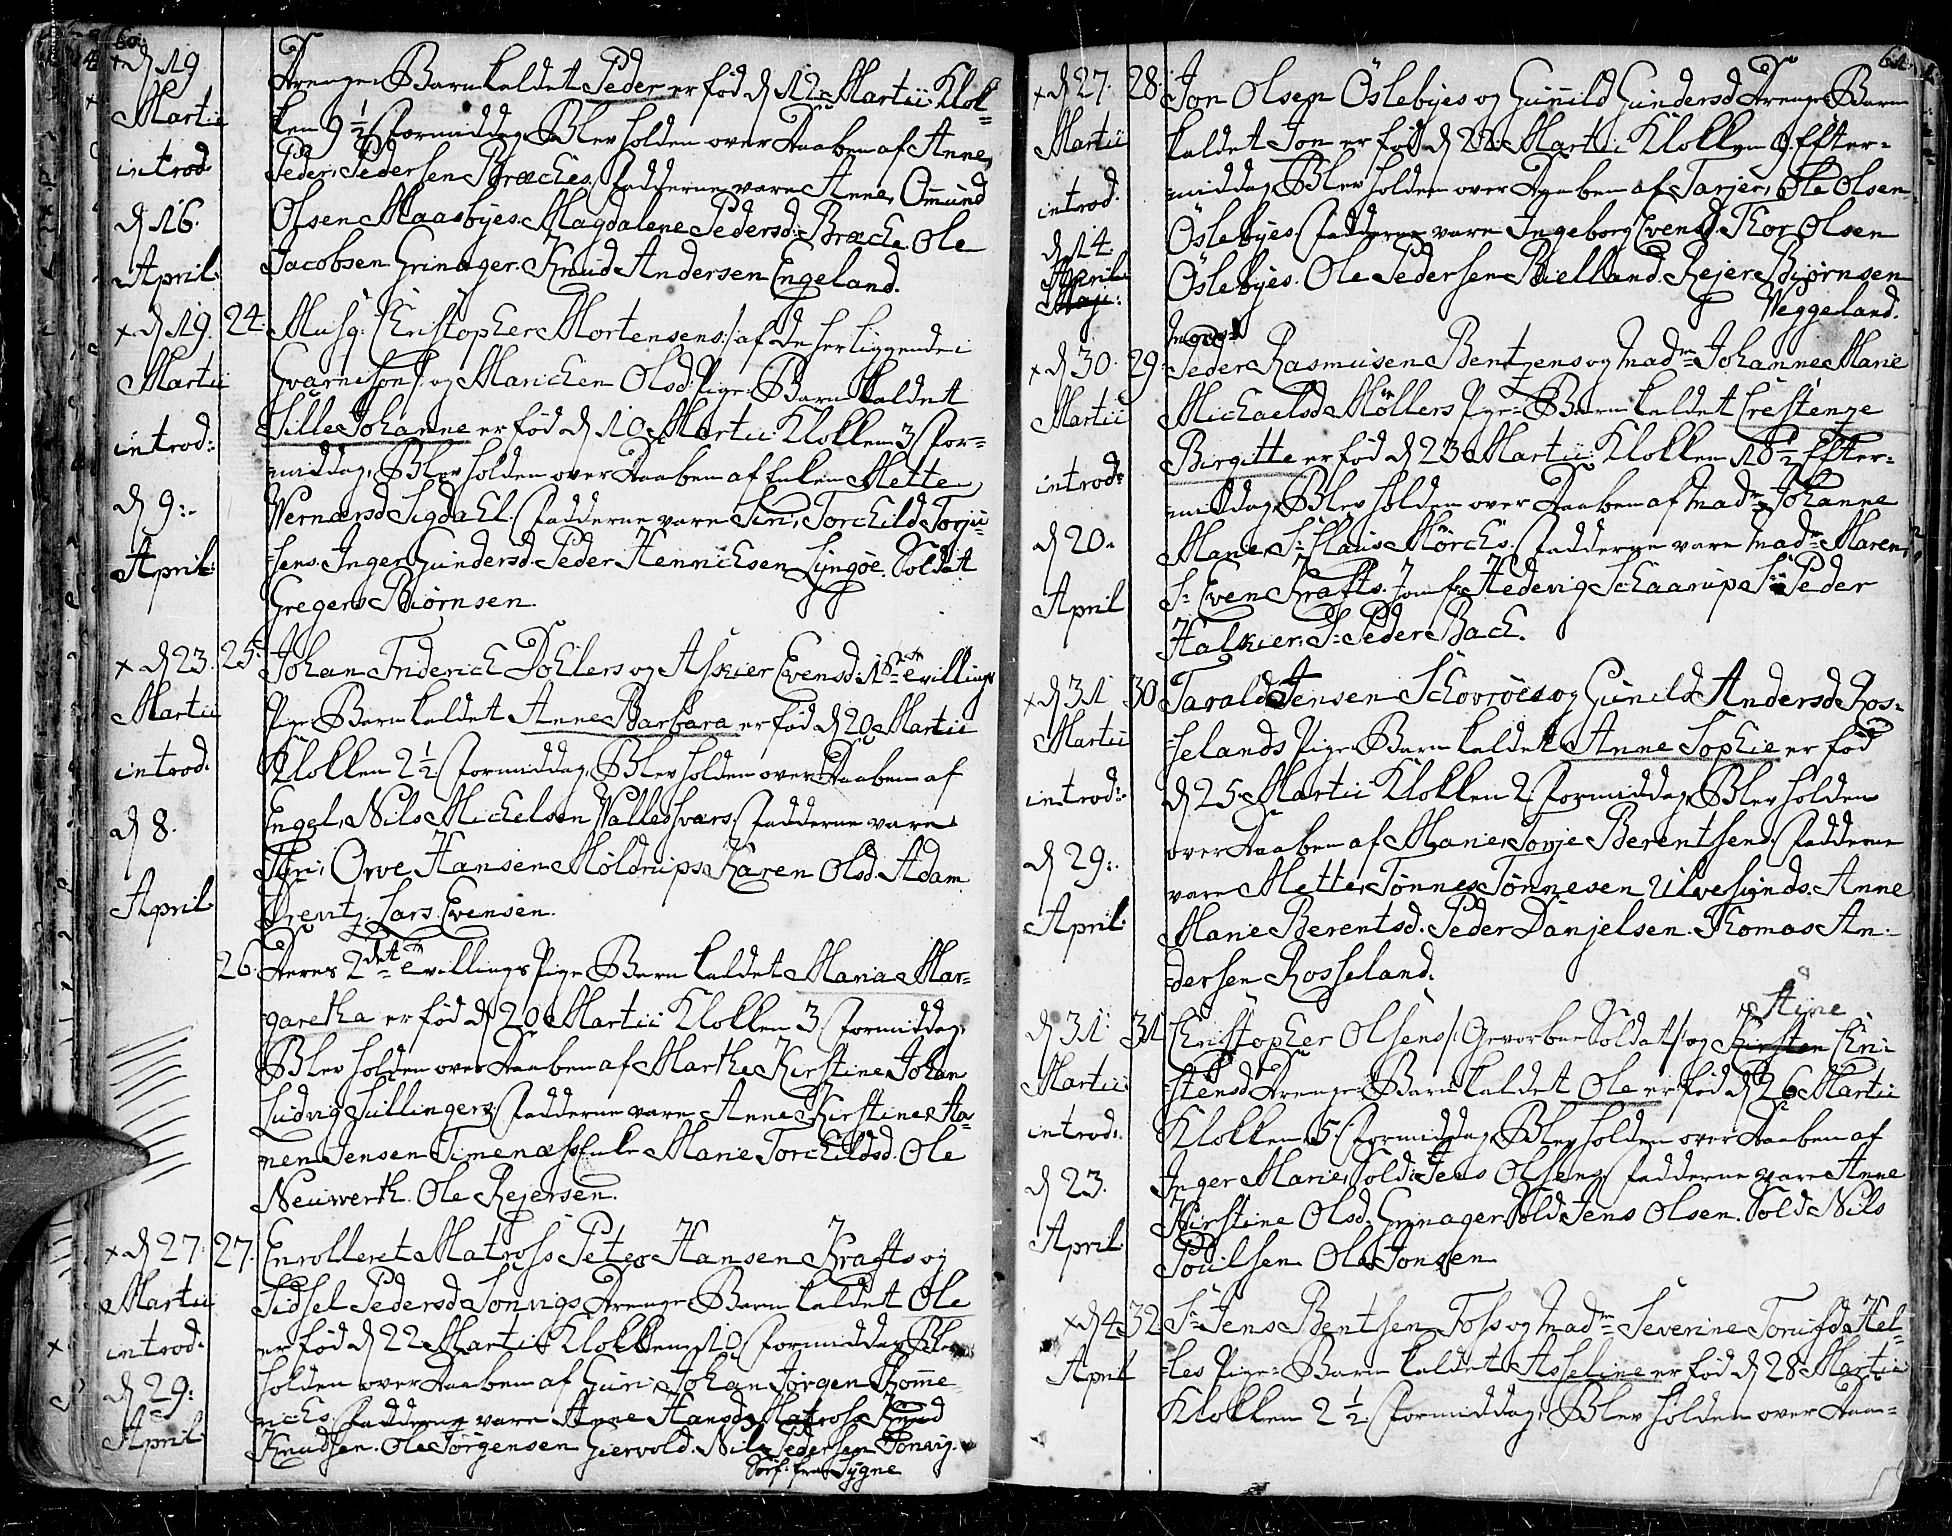 60.
+ d 19 Martii introd: d 16. April:
Drenge-Barn kaldet Peder er fød d 12 Martii Klok-
ken 9 1/2 Formiddag, Blev holden over Daaben af Anne,
Peder Pedersen Bræches. Fadderne vare Anne, Omund
Olsen Maasbyes. Magdalene Pedersd: Bræche. Ole
Jacobsen Grinager. Knud Andersen Engeland.
+ d 19. Martii introd: d 9:- April:
24. Musq: Christopher Mortensens /: af de her liggende
Gvarneson :/ og Marichen Olsd: Pige-Barn kaldet
Sille Johanne er fød d 10 Martii Klokken 3 For-
middag, Blev holden over Daaben af Enken Mette
Wernersd Sigdahl. Fadderne vare Siri, Torchild Torju-
sens. Inger Gundersd. Peder Hennichsen Lyngøe. Soldat
Gregers Biørnsen.
+ d 23. Martii introd. d 8. April
25. Johan Friderich Dohlers og Assier Evensd: 1ste tvillings
Pige-Barn kaldet Anne Barbara er fød d 20 Martii
Klokken 2 1/2 Formiddag, Blev holden over Daaben af
Engel, Nils Michelsen Walleshværs. Fadderne vare
Siri, Ove Hansen Møldrups. Karen Olsd. Adam
Drentz. Lars Evensen.
26. Deres 2det tvillings Pige-Barn kaldet Maria Mar-
garetha er fød d 20 Martii Klokken 3 Formiddag,
Blev holden over Daaben af Marthe Kirstine, Johan
Ludvig Sullingers. Fadderne vare Anne Kirstine, Ha-
nen Jensen Timenæss Enke. Marie Torchildsd. Ole
Neuwerth. Ole Rejersen.
+ d 27. Martii introd: d 29: April
27. Enrolleret Matross Peter Hansen Krafts og
Sidsel Pedersd Sonvigs Drenge-Barn kaldet Ole
er fød d 22 Martii Klokken 10 Formiddag Blev
holden over Daaben af Guri, Johan Jørgen
Fadderne vare Anne Hansd. Matross Knud
Knudsen. Ole Jørgensen Giervold. Nils Pedersen Sonvig.
Tygne
61.
+ d 27. Martii introd. d 14. April May:
28. Jon Olsen Øslebyes og Gunnild Gundersd Drenge-Barn
kaldet Jon er fød d 22 Martii Klokken 9 Efter-
middag, Blev holden over Daaben af Tarjer, Ole Olsen
Øslebyes. Fadderne vare Ingeborg Evensd. Thor Olsen
Øslebyes. Ole Pedersen Bielland. Rejer Biørnsen
Weggeland.
+ d 30. Martii introd: d 20. April
29. Peder Rasmusen Bentzens og Madme Johanne Marie
Michaelsd Møllers Pige-Barn kaldet Crestenze
Birgitte er fød d 23 Martii Klokken 10 1/2 Efter-
middag, Blev holden over Daaben af Madme Johanne
Marie, Sr Claus Mørchs. Fadderne vare Madme Maren,
Sr Even Krafts. Jomfr Hedevig Schaarup. Sr Peder
Halkier. Sr Peder Bach.
+ d 31 Martii introd: d 29:. April
30 Tarald Jensen Schovrøes og Gunild Andersd Ros-
selands Pige-Barn kaldet Anne Sophie er fød
d 25 Martii Klokken 2 Formiddag, Blev holden
over Daaben af Marie, Tørje Berentsens. Fadderne
vare Mette, Tønnes Tønnesen Ulvesunds. Anne
Marie Berentsd. Peder Danjelsen. Thomas An-
dersen Rosseland.
d 31 Martii introd: d 23. April
Stine
31 Christopher Olsens /: Gevorben Soldat :/ og Kirsten Chri-
stensd Drenge-Barn kaldet Ole er fød d 26 Martii
Klokken 5 Formiddag, Blev holden over Daaben af
Inger Marie, Sold: Jens Olsens. Fadderne vare Anne
Kirstine Olsd. Grinager. Sold Jens Olsen. Sold Nils
Poulsen. Ole Jonsen
+ d 4 April
32 Sr Jens Bentsen Foss og Madme Severine Toru
Pige-Barn kaldet Asseline er fød d 28 Martii
Klokken 2 1/2 Formiddag, Blev holden over Daa-